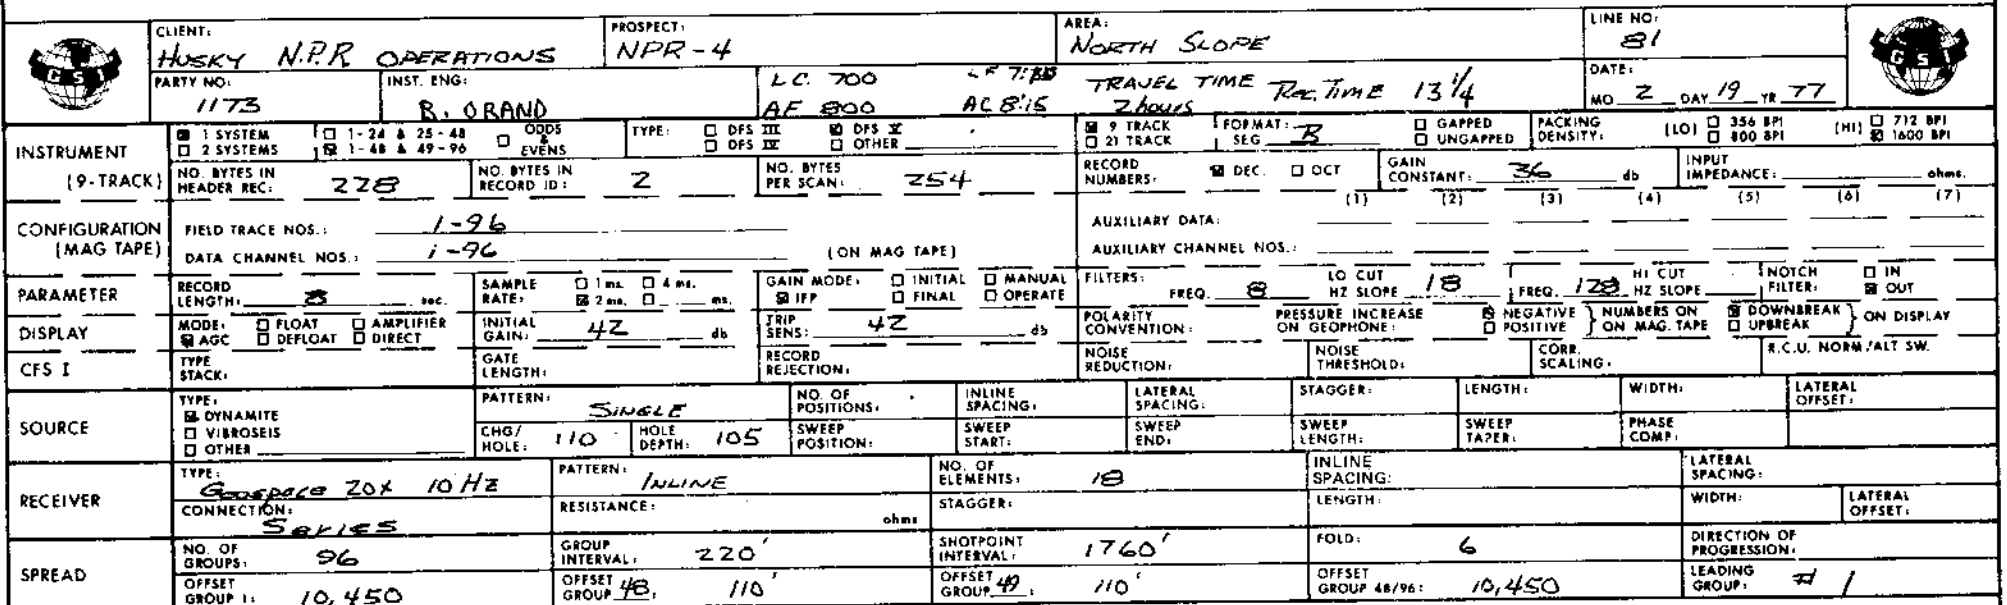 CLIENT: HUSKY N.P.R OPERATIONS PROSPECT: NPR-4 AREA: NORTH SLOPE LINE NO: 81
GSI GSI
PARTY NO: 1173 INST. ENG: R. ORAND LC. 700 TRAVEL TIME Rec. Time 13 1/4 DATE:
AF 800 AC 8:15 2 hours MO 2 DAY 19 YR 77
INSTRUMENT (9-TRACK) 1 SYSTEM 1-24 & 25-48 ODDS & EVENS TYPE: DFS III DFS V 9 TRACK FORMAT: GAPPED PACKING DENSITY: (LO) 356 BPI (HI) 712 BPI
2 SYSTEMS 1-48 & 49-96 DFS IV OTHER 21 TRACK SEG B UNGAPPED 800 BPI 1600 BPI
NO. BYTES IN HEADER REC: 228 NO. BYTES IN RECORD ID: 2 NO. BYTES PER SCAN: 254 RECORD NUMBERS: DEC. OCT GAIN CONSTANT: 36 db INPUT IMPEDANCE: ohms.
(1) (2) (3) (4) (5) (6) (7)
CONFIGURATION (MAG TAPE) FIELD TRACE NOS.: 1-96 AUXILIARY DATA:
DATA CHANNEL NOS.: 1-96 (ON MAG TAPE) AUXILIARY CHANNEL NOS.:
PARAMETER RECORD LENGTH: 8 sec. SAMPLE RATE: 1 ms. 4 ms. 2 ms. ms. GAIN MODE: INITIAL MANUAL IFP FINAL OPERATE FILTERS: FREQ. 8 LO CUT HZ SLOPE 18 FREQ. 128 HI CUT HZ SLOPE NOTCH FILTER: IN OUT
DISPLAY MODE: FLOAT AMPLIFIER AGC DEFLOAT DIRECT INITIAL GAIN: 42 db TRIP SENS: 42 db POLARITY CONVENTION: PRESSURE INCREASE ON GEOPHONE: NEGATIVE POSITIVE NUMBERS ON ON MAG. TAPE DOWNBREAK UPBREAK ON DISPLAY
CFS I TYPE STACK: GATE LENGTH: RECORD REJECTION: NOISE REDUCTION: NOISE THRESHOLD: CORR. SCALING: R.C.U. NORM/ALT SW.
SOURCE TYPE: DYNAMITE VIBROSEIS OTHER PATTERN: SINGLE NO. OF POSITIONS: INLINE SPACING: LATERAL SPACING: STAGGER: LENGTH: WIDTH: LATERAL OFFSET:
CHG/HOLE: 110 HOLE DEPTH: 105 SWEEP POSITION: SWEEP START: SWEEP END: SWEEP LENGTH: SWEEP TAPER: PHASE COMP:
RECEIVER TYPE: Geospace 20x 10 HZ PATTERN: INLINE NO. OF ELEMENTS: 18 INLINE SPACING: LATERAL SPACING:
CONNECTION: Series RESISTANCE: ohms STAGGER: LENGTH: WIDTH: LATERAL OFFSET:
SPREAD NO. OF GROUPS: 96 GROUP INTERVAL: 220' SHOTPOINT INTERVAL: 1760' FOLD: 6 DIRECTION OF PROGRESSION:
OFFSET GROUP 1: 10,450 OFFSET GROUP 48: 110' OFFSET GROUP 49: 110' OFFSET GROUP 48/96: 10,450 LEADING GROUP: # 1